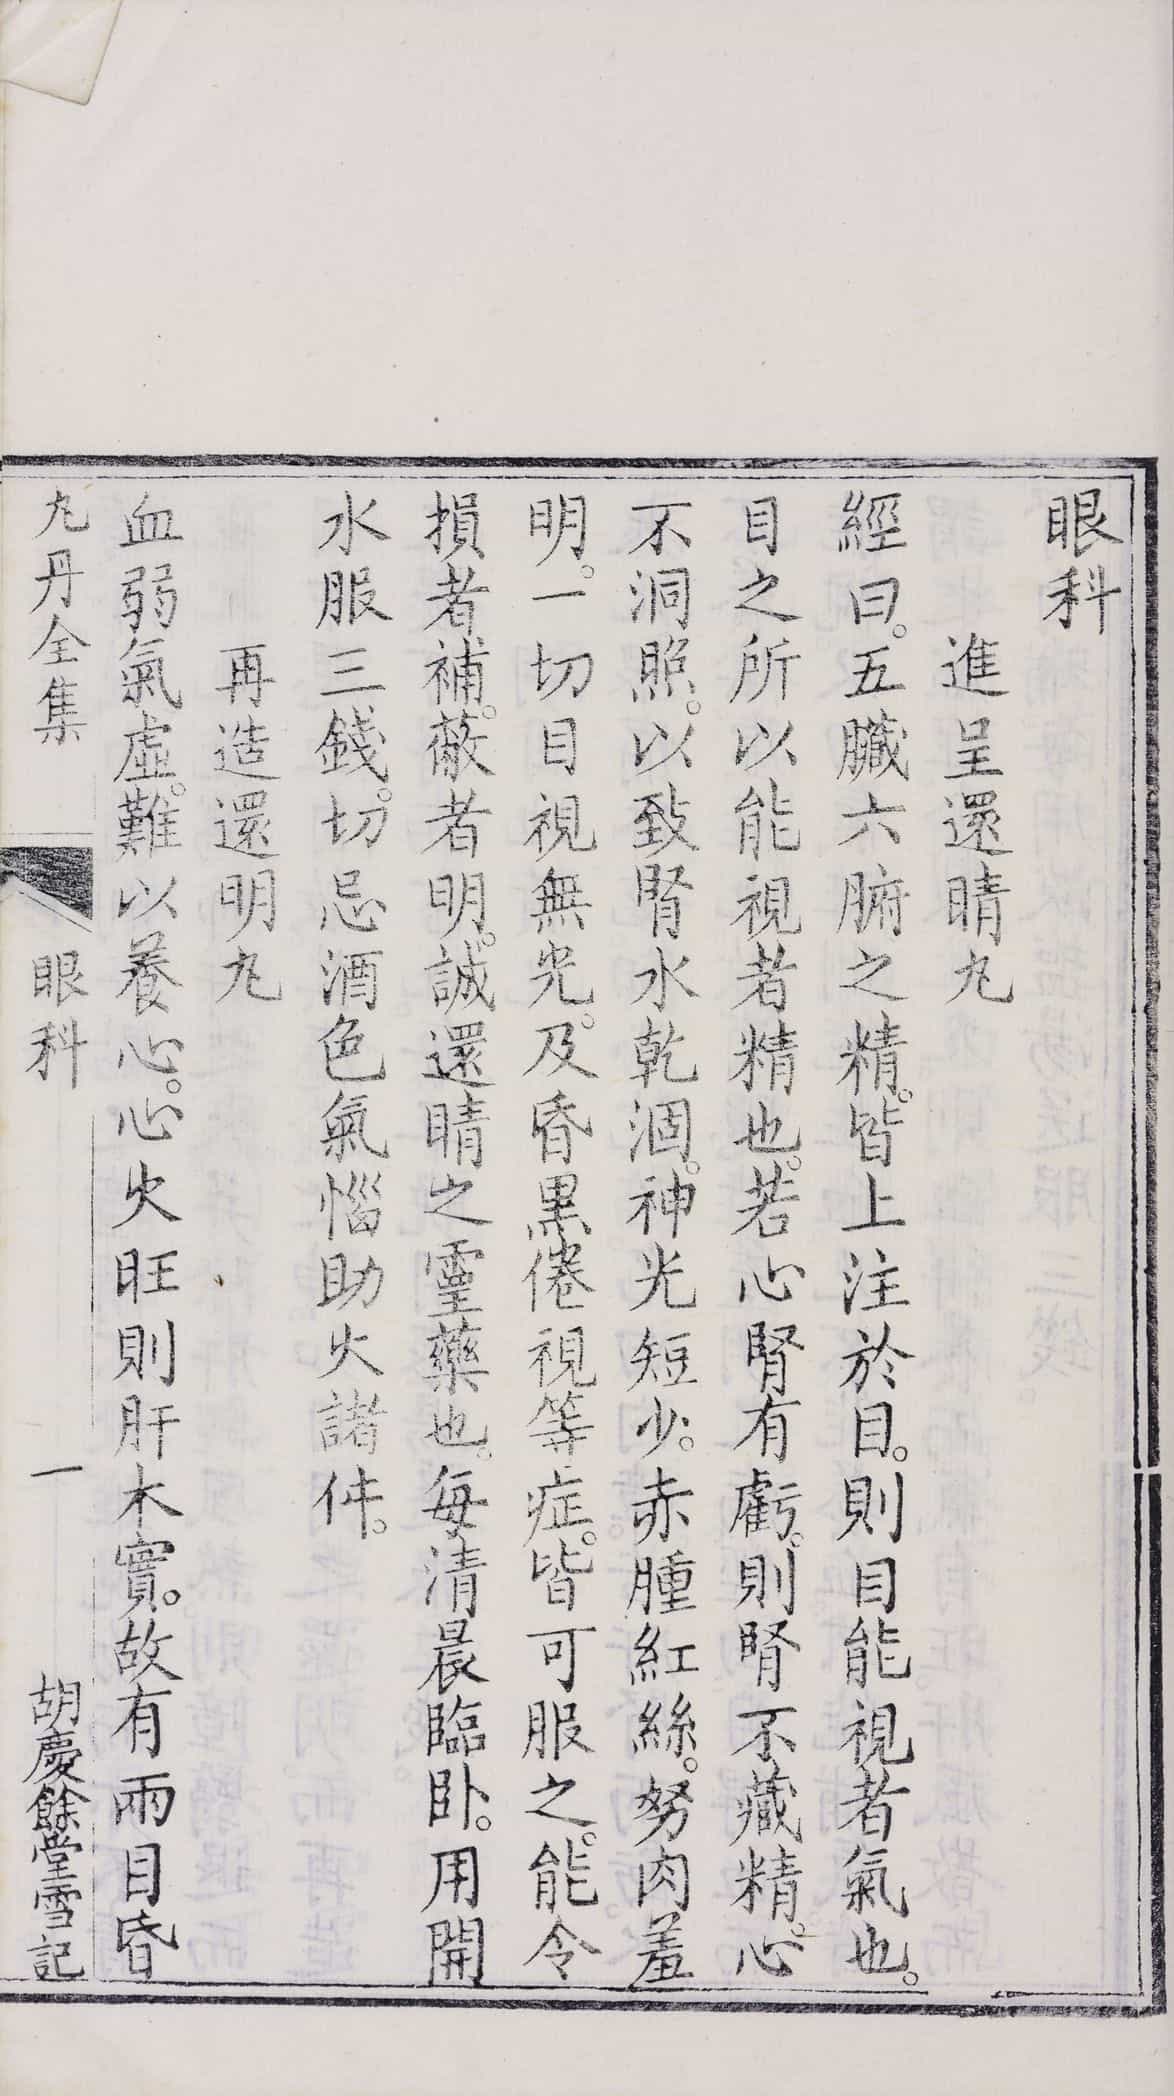 眼科
進呈還睛丸
經曰。五臟六腑之精。皆上注於目。則目能視者氣也。
目之所以能視者精也。若心腎有虧。則腎不藏精。心
不洞照。以致腎水乾涸。神光短少。赤腫紅絲。努肉羞
明。一切目視無光。及昏黑倦視等症。皆可服之。能令
損者補。蔽者明。誠還睛之靈藥也。每清晨臨卧。用開
水服三錢。切忌酒色氣惱助火諸件。
再造還明丸
血弱氣虛。難以養心。心火旺則肝木實。故有兩目昏
丸丹全集
眼科
一
胡慶餘堂雪記